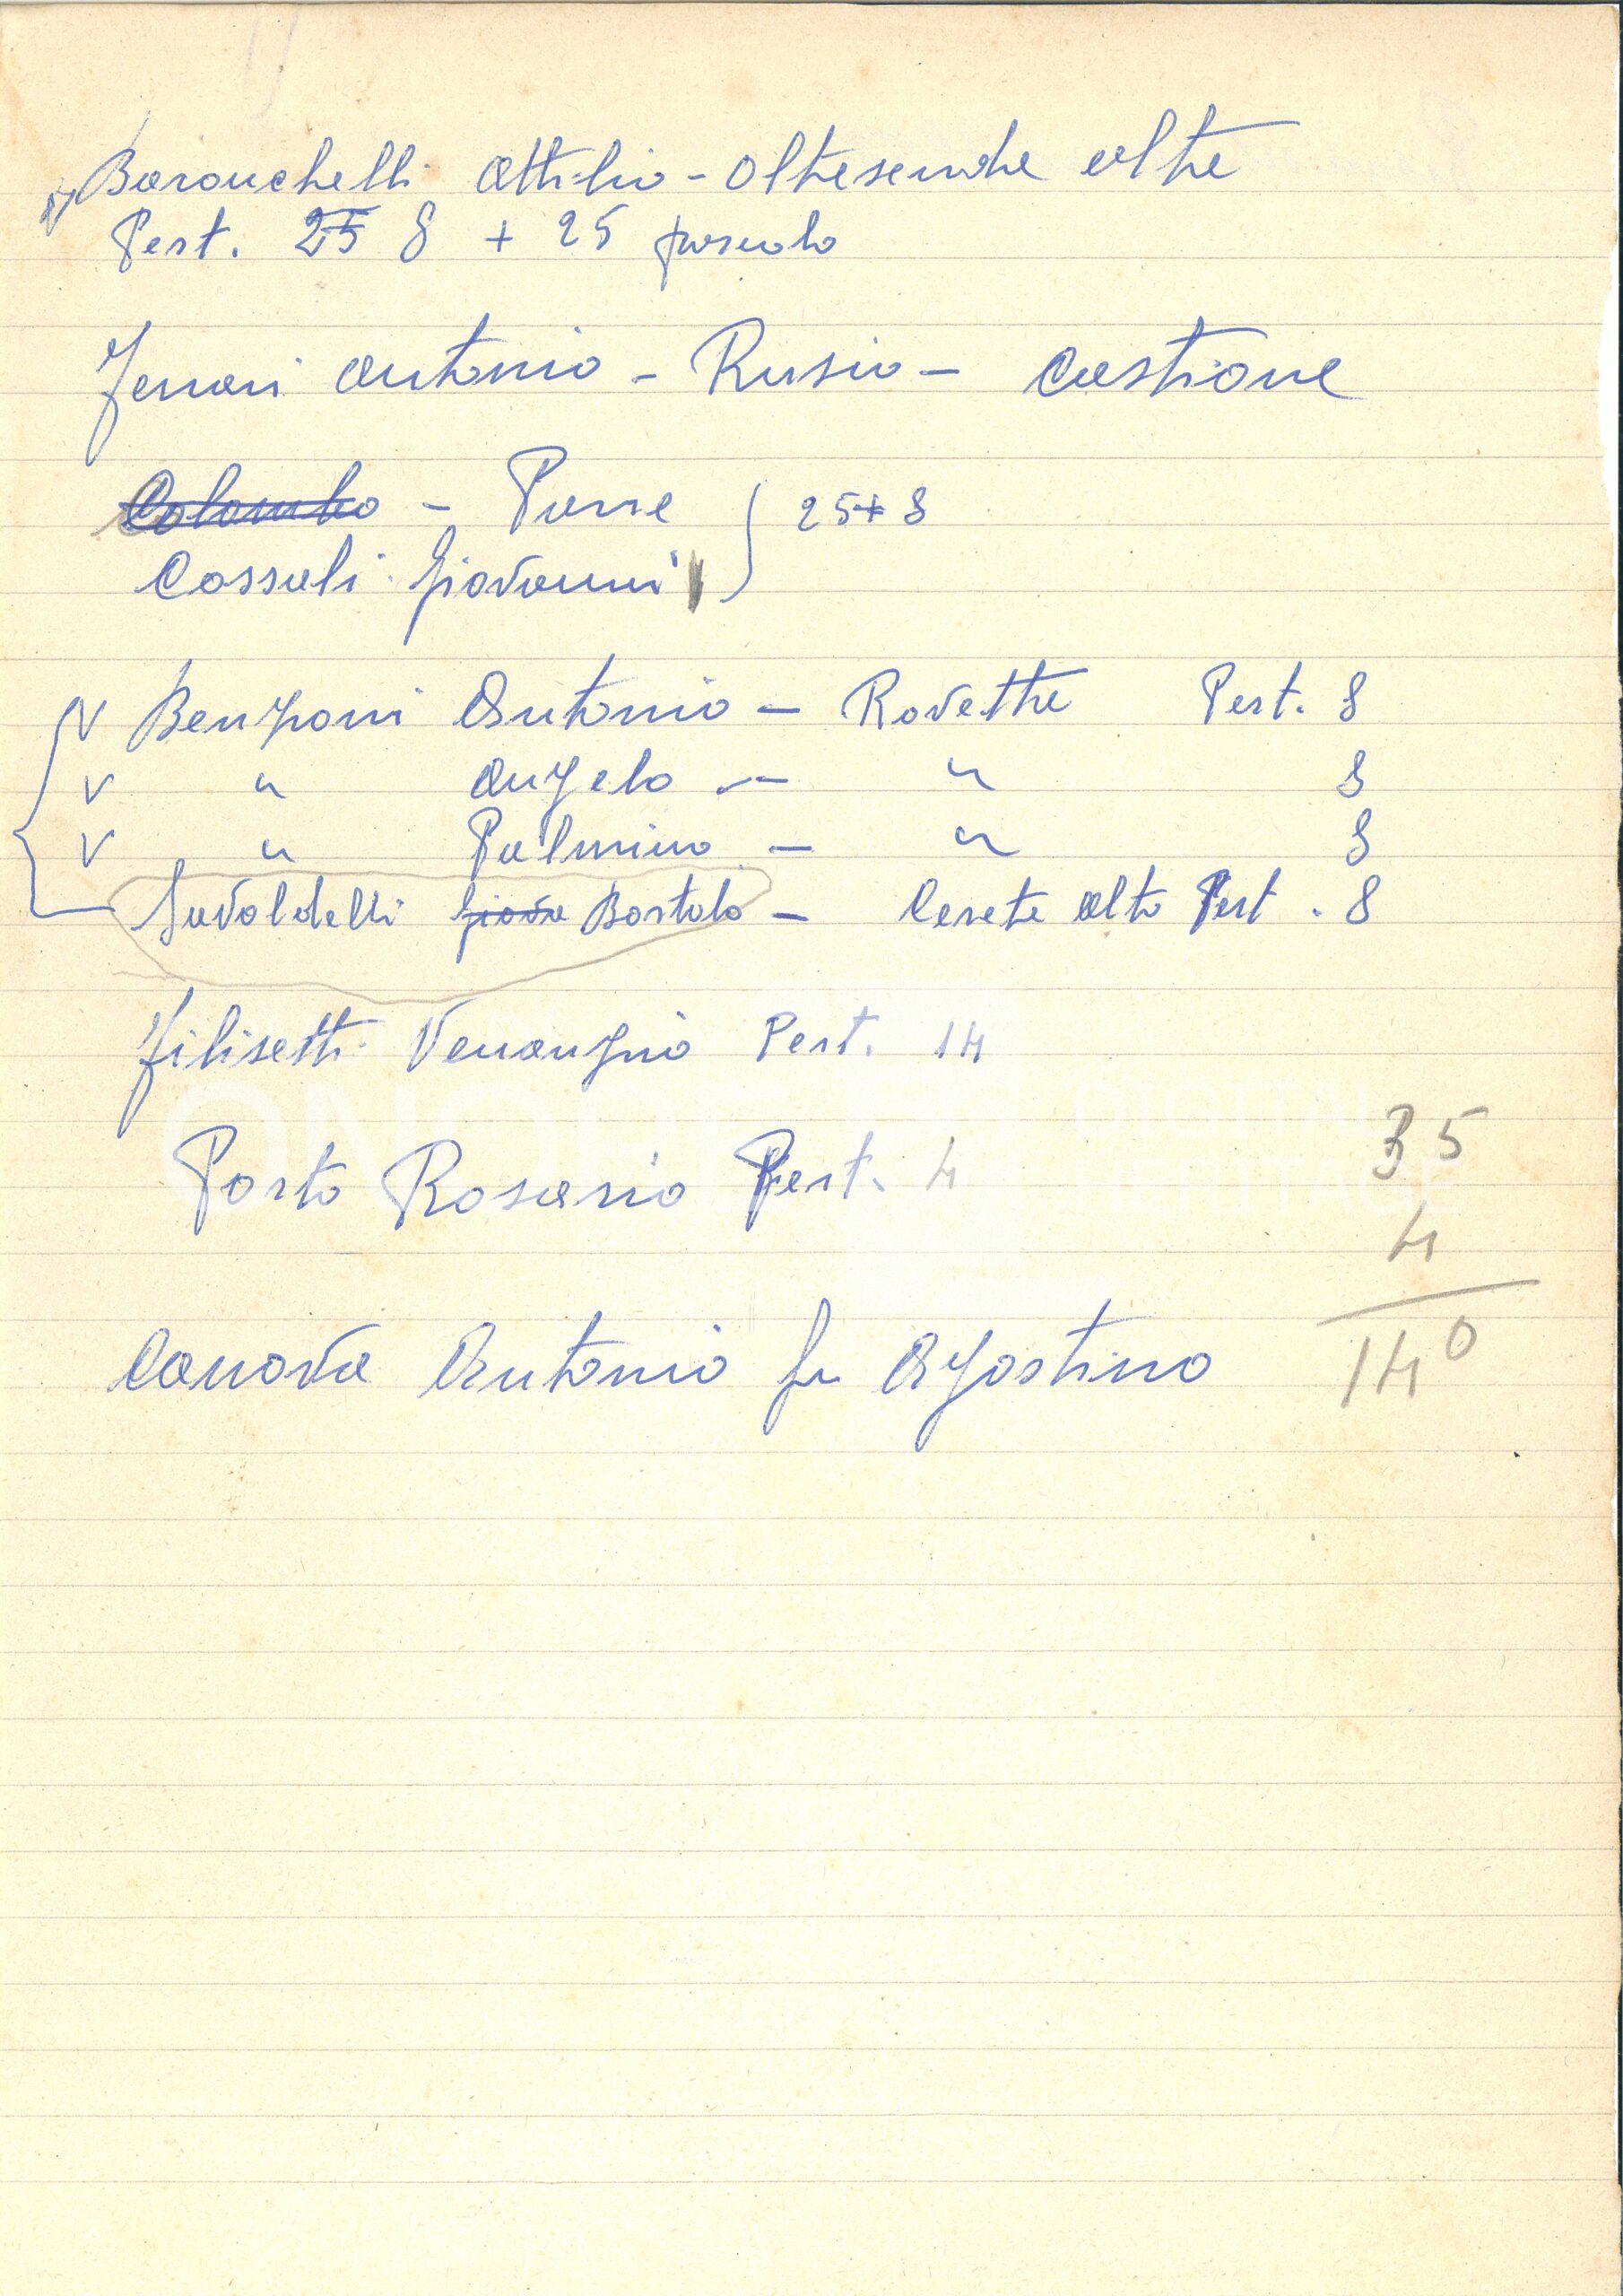 Baronchelli Attilio - Oltresenda alta
Pert. 25 8 + 25 pascolo
Ferrari Antonio - Rusio - Castione
Colombo - Parre
Cossali Giovanni } 25+8
V Benzoni Antonio - Rovetta Pert. 8
V " Angelo - " 8
V " Palmino - " 8
Savoldelli Giova Bortolo - Cerete alto Pert. 8
Filisetti Venanzio Pert. 14
Porto Rosario Pert. 4
35
4
140
Canova Antonio fu Agostino